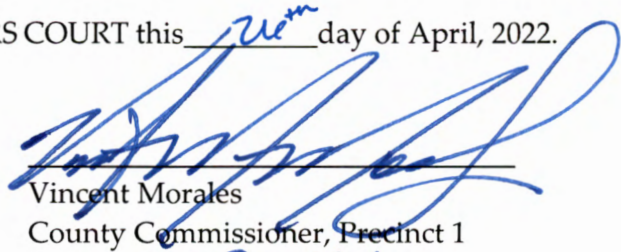 S COURT this 26th day of April, 2022.
Vincent Morales
County Commissioner, Precinct 1